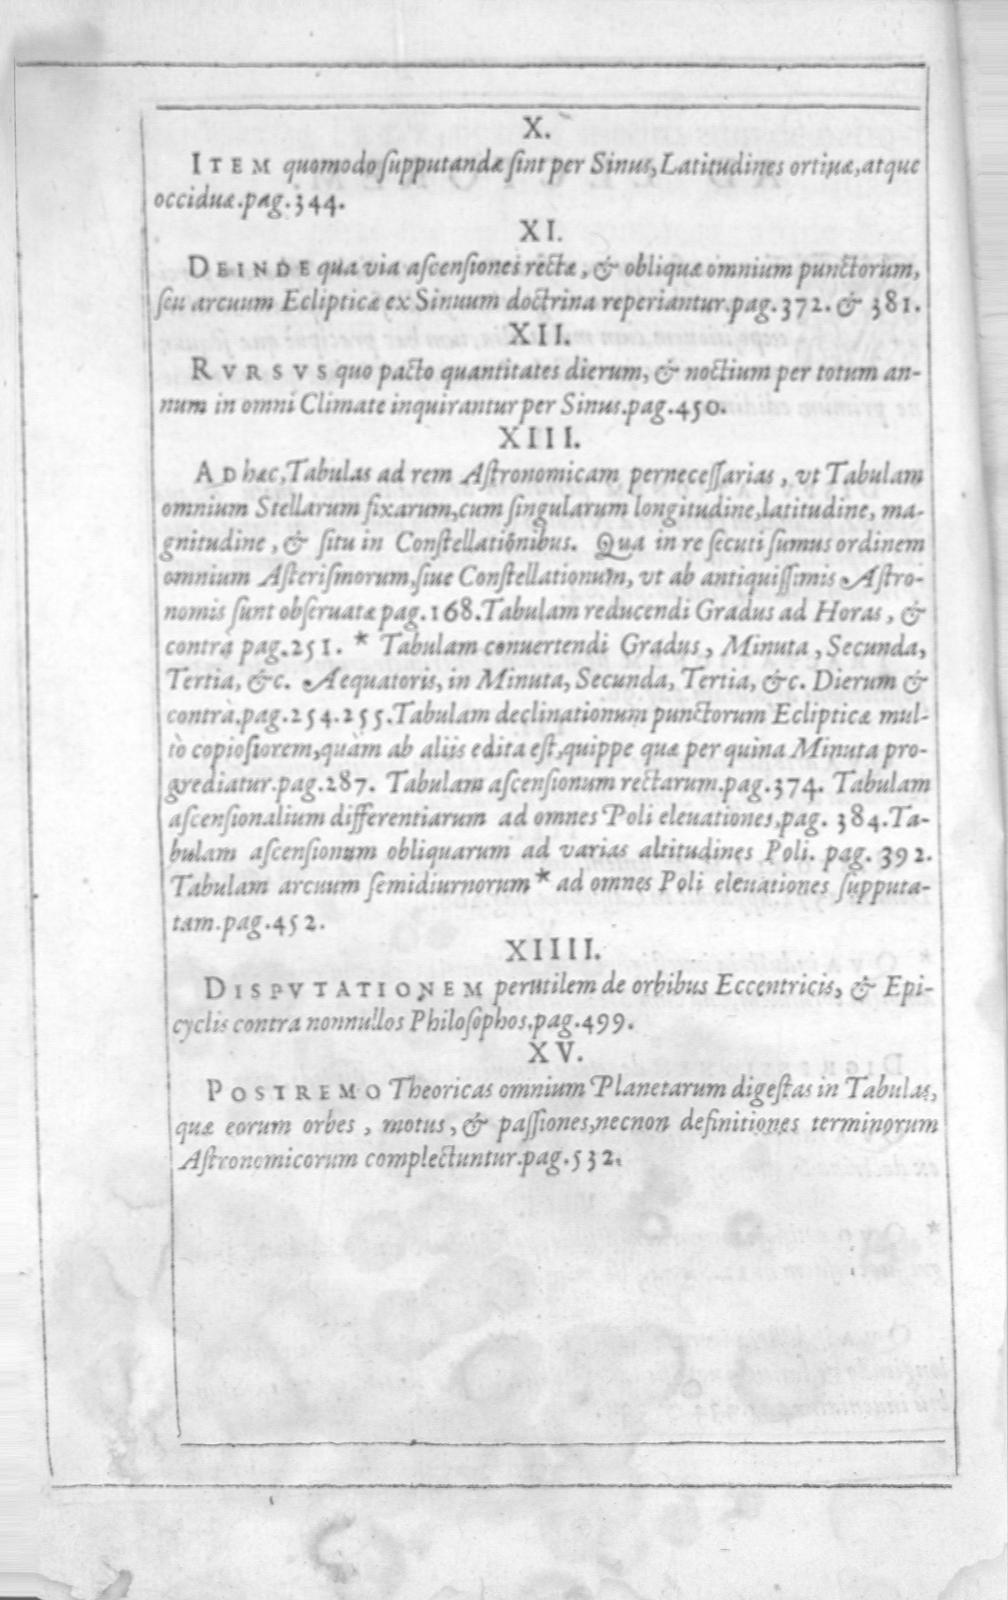 X.
ITEM quomodo ſupputandæ ſint per Sinus, Latitudines ortiuæ, atque
occiduæ. pag. 344.
XI.
DEINDE qua via aſcenſiones rectæ, & obliquæ omnium punctorum,
ſeu arcuum Eclipticæ ex Sinuum doctrina reperiantur. pag. 372. & 381.
XII.
RVRSVS quo pacto quantitates dierum, & noctium per totum an-
num in omni Climate inquirantur per Sinus. pag. 450.
XIII.
AD hæc, Tabulas ad rem Aſtronomicam perneceſſarias, vt Tabulam
omnium Stellarum fixarum, cum ſingularum longitudine, latitudine, ma-
gnitudine, & ſitu in Conſtellationibus. Qua in re ſecuti ſumus ordinem
omnium Aſteriſmorum, ſiue Conſtellationum, vt ab antiquiſſimis Aſtro-
nomis ſunt obſeruatæ pag. 168. Tabulam reducendi Gradus ad Horas, &
contrà pag. 251. * Tabulam conuertendi Gradus, Minuta, Secunda,
Tertia, &c. Aequatoris, in Minuta, Secunda, Tertia, &c. Dierum &
contrà, pag. 254. 255. Tabulam declinationum punctorum Eclipticæ mul-
tò copioſiorem, quàm ab aliis edita eſt, quippe quæ per quina Minuta pro-
grediatur. pag. 287. Tabulam aſcenſionum rectarum. pag. 374. Tabulam
aſcenſionalium differentiarum ad omnes Poli eleuationes, pag. 384. Ta-
bulam aſcenſionum obliquarum ad varias altitudines Poli. pag. 392.
Tabulam arcuum ſemidiurnorum * ad omnes Poli eleuationes ſupputa-
tam. pag. 452.
XIIII.
DISPVTATIONEM perutilem de orbibus Eccentricis, & Epi-
cyclis contra nonnullos Philoſophos. pag. 499.
XV.
POSTREMO Theoricas omnium Planetarum digeſtas in Tabulas,
quæ eorum orbes, motus, & paſſiones, necnon definitiones terminorum
Aſtronomicorum complectuntur. pag. 532.